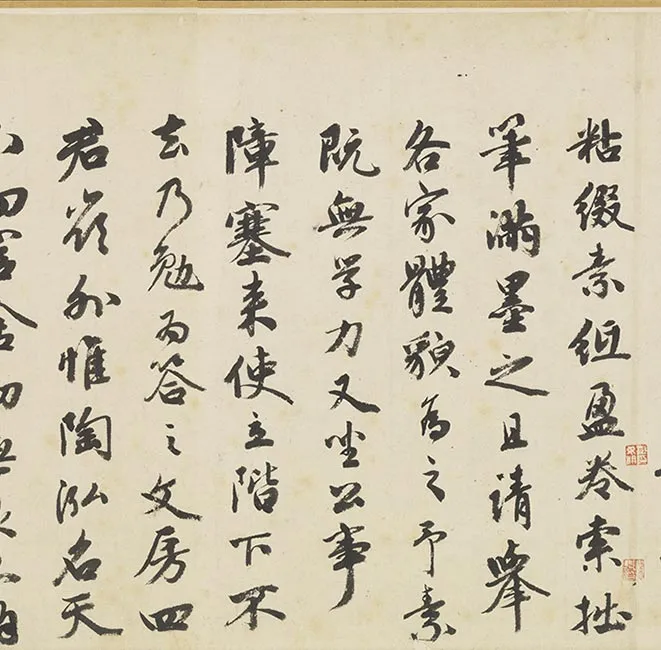 粘綴素紙盈卷索拙
筆墨之且請舉
各家體貌為之予素
既無学力又坐公事
障塞来使立階下不
去乃勉為答之文房四
君嶺外惟陶泓名天